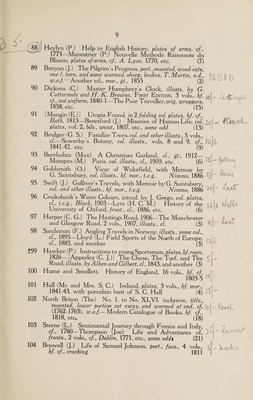 9
88 Heylyn (P.) Help to English History, plates of arms, cf.,
1773—Menestrier (P.) Nouvelle Methode Raisonnée du
Blason, plates of arms, cf. A. Lyon, 1770, etc. (7)
89 Bunyan (J.) The Pilgrim's Progress, port., mounted, wood cuts,
one l. torn, and some wormed, sheep, broken, T. Martin, n.d.,
w.a.f.— Another ed., mor., gt., 1855 (2)
90 Dickens (C.) Master Humphrey's Clock, illusts. by G.
Cattermole and H. K. Browne, FIRST EDITION, 3 vols., hf.
cf., not uniform, 1840-1—The Poor Traveller, orig. wrappers,
1858, etc. (15)
91 (Mangin (E.)) Utopia Found, in 2 folding col. plates, hf. cf.,
Bath, 1813—Beresford (J.) Miseries of Human Life, col.
plates, vol. 2, bds., uncut, 1807, etc., some odd (13)
92 Boulger (G. S.) Familiar Trees, col. and other illusts., 3 vols.,
cl.—Sowerby's Botany, col. illusts., vols. 8 and 9, cf.,
1841-42, etc. (9)
93 Beerbohm (Max) A Christmas Garland, cl., gt., 1912—
Marques (M.) Paris, col. illusts., cl., 1909, etc. (6)
94 Goldsmith (O.) Vicar of Wakefield, with Memoir by
G. Saintsbury, col. illusts., hf. mor., t.e.g. Nimmo, 1886
95 Swift (J.) Gulliver's Travels, with Memoir by G. Saintsbury,
col. and other illusts., hf. mor., t.e.g. Nimmo, 1886
96 Cruikshank's Water Colours, introd. by J. Grego, col. plates,
cl., t.e.g., Black, 1903—Lyte (H. C. M.) History of the
University of Oxford, front., cl., 1886, etc. (6)
97 Harper (C. G.) The Hastings Road, 1906—The Manchester
and Glasgow Road, 2 vols., 1907, illusts., cl. (3)
98 Sandeman (F.) Angling Travels in Norway, illusts., some col.,
cl., 1895—Lloyd (L.) Field Sports of the North of Europe,
cl., 1885, and another (3)
99 Hawker (P.) Instructions to young Sportsmen, plates, hf. roan,
1826—Apperley (C. J.) The Chase, The Turf, and The
Road, illusts. by Alken and Gilbert, cl., 1843, and another (3)
100 Hume and Smollett. History of England, 16 vols., hf. cf.
1803-5
101 Hall (Mr. and Mrs. S. C.) Ireland, plates, 3 vols., hf. mor.,
1841-43, with porcelain bust of S. C. Hall (4)
102 North Briton (The) No. I. to No. XLVI. inclusive, title,
mounted, lower portion cut away, and worned at end, cf.
(1762-1763), w.a.f.—Modern Catalogue of Books, hf. cf.,
1818, etc. (18)
103 Sterne (L.) Sentimental Journey through France and Italy,
cf., 1780—Thomson (Joe) Life and Adventures of,
fronts., 2 vols., cf., Dublin, 1771, etc., some odd (21)
104 Boswell (J.) Life of Samuel Johnson, port., facs., 4 vols.,
hf. cf., cracking 1811